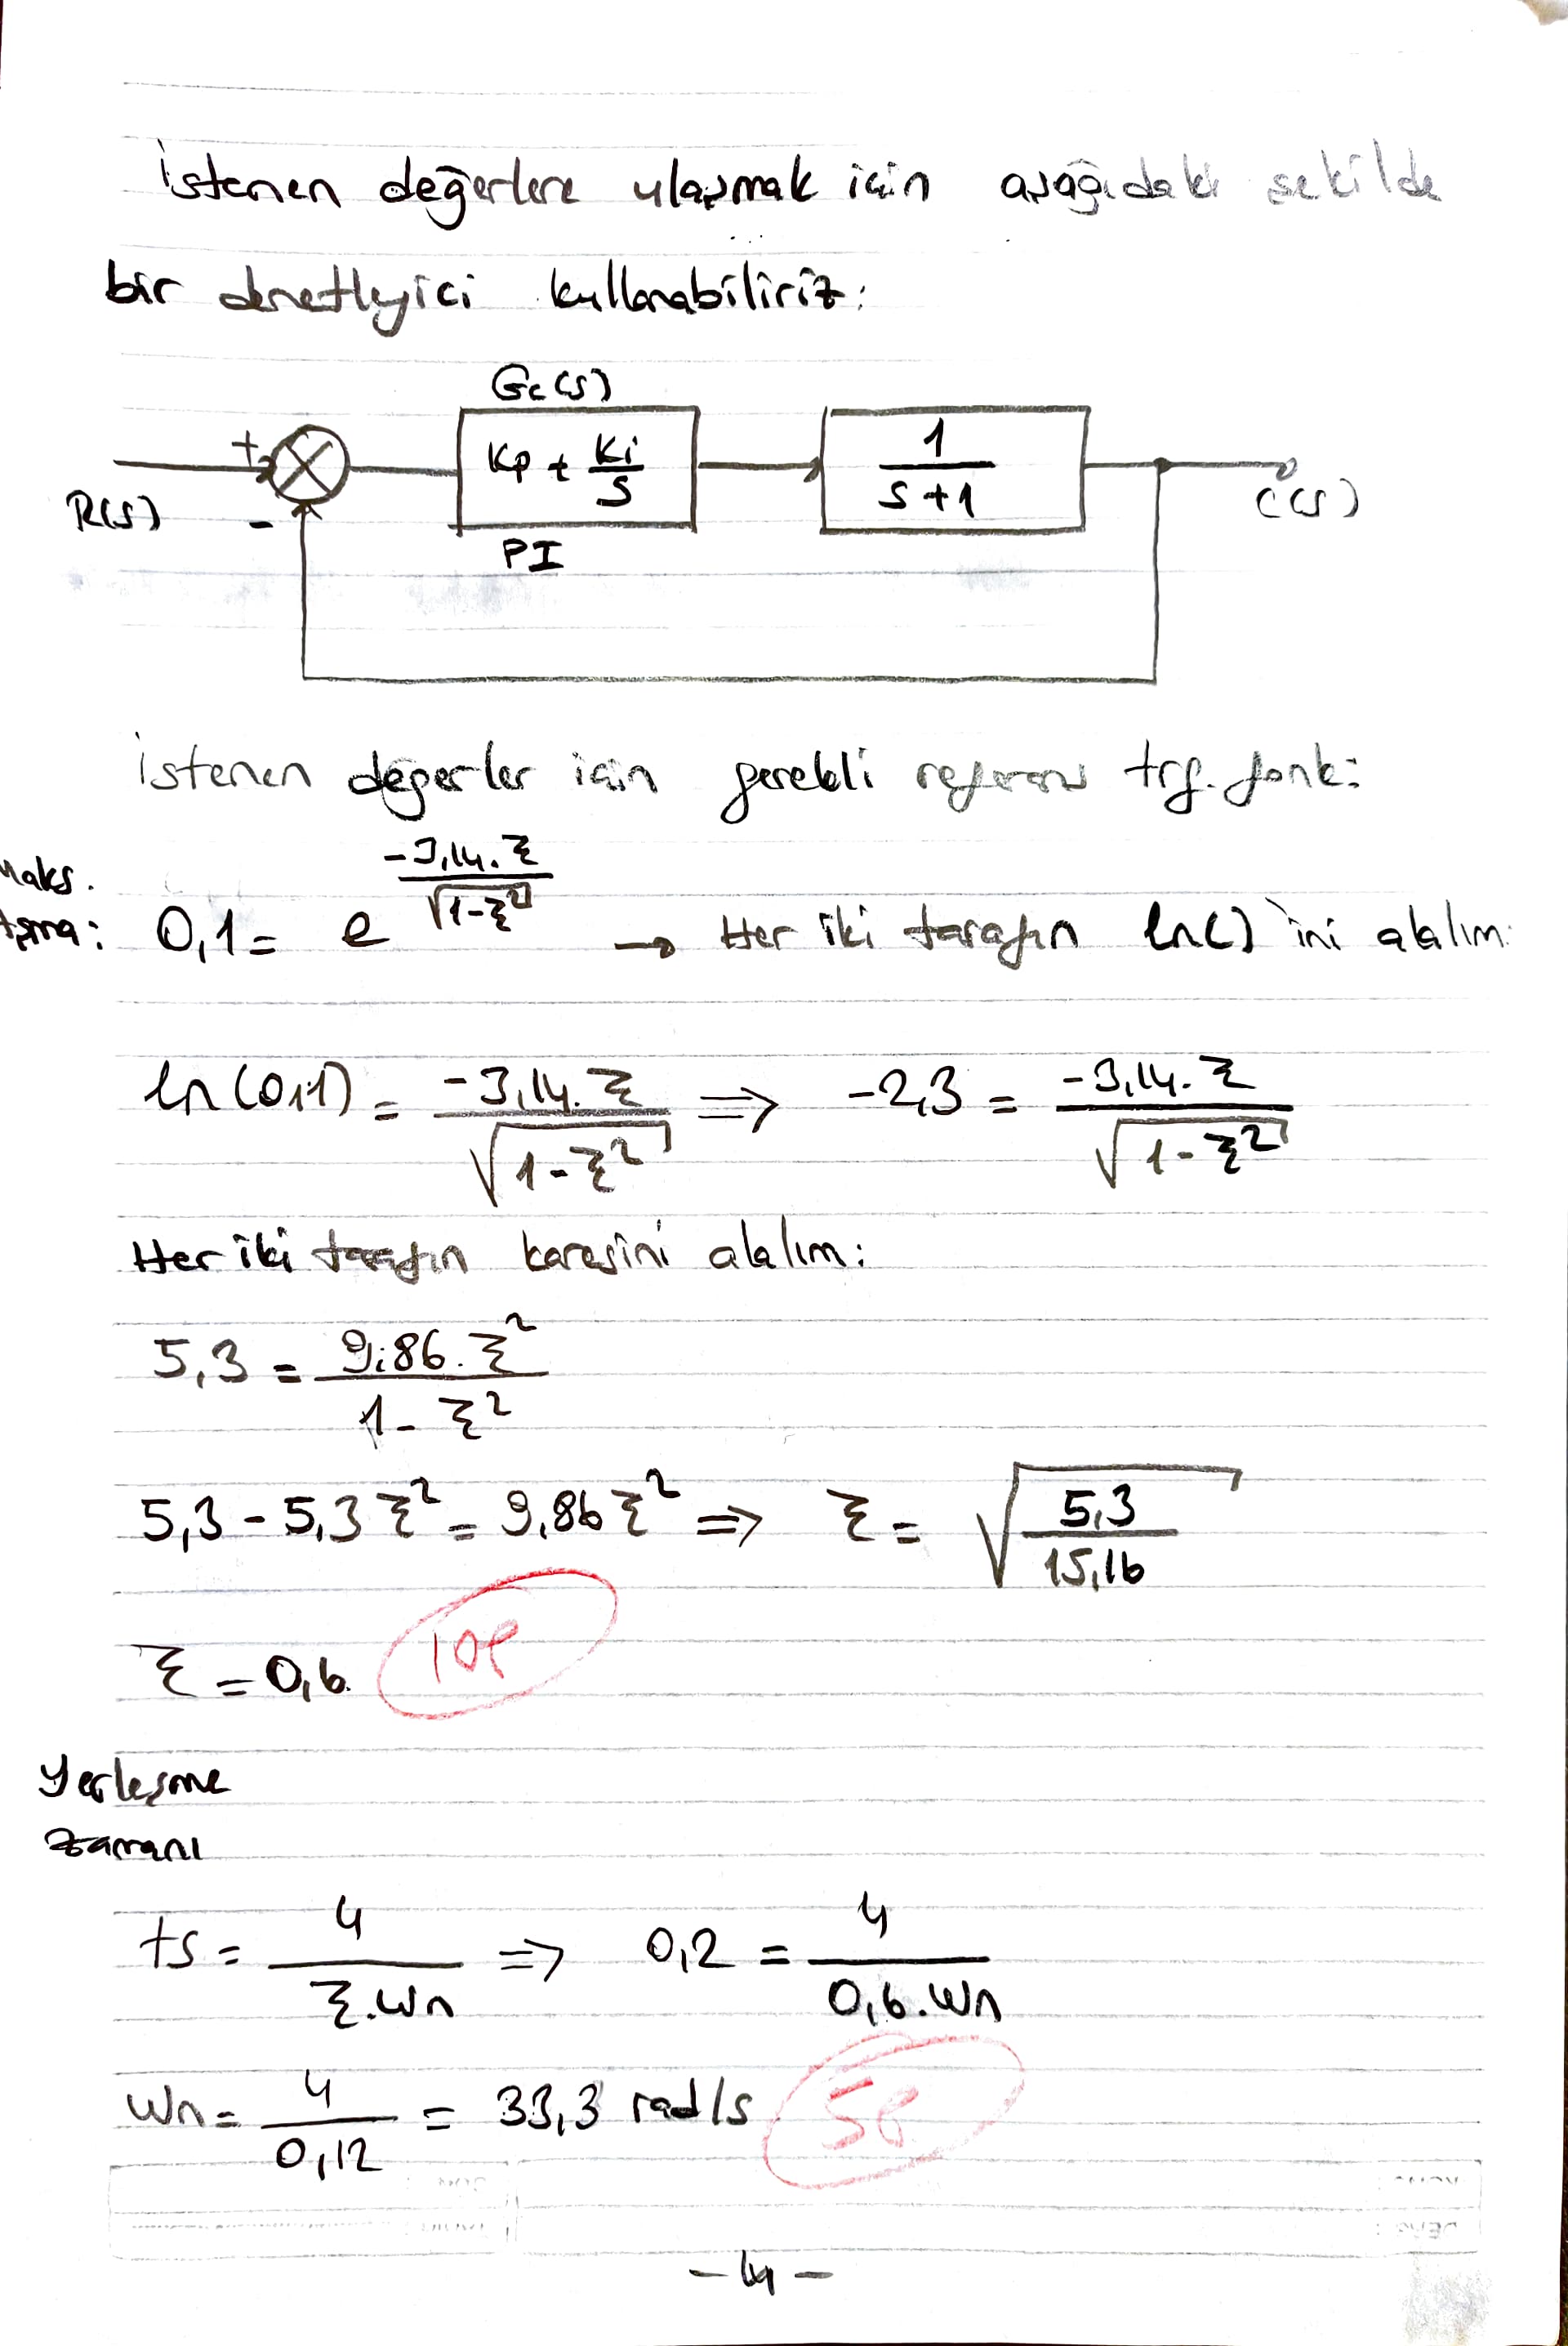 istenen değerlere ulaşmak için aşağıdaki şekilde
bir denetleyici kullanabiliriz:
Gc(s)
R(s) + - Kp + Ki/s 1/(s+1) C(s)
PI
istenen değerler için gerekli referans trf. fonk:
Maks.
Aşma: 0,1 = e^(-3,14.ξ/√(1-ξ²)) → Her iki tarafın ln() ini alalım:
ln(0,1) = -3,14.ξ/√(1-ξ²) ⇒ -2,3 = -3,14.ξ/√(1-ξ²)
Her iki tarafın karesini alalım:
5,3 = 9,86.ξ²/(1-ξ²)
5,3 - 5,3ξ² = 9,86ξ² ⇒ ξ = √(5,3/15,16)
ξ = 0,6 10p
Yerleşme
zamanı
ts = 4/(ξ.wn) ⇒ 0,2 = 4/(0,6.wn)
wn = 4/0,12 = 33,3 rad/s 5p
-14-